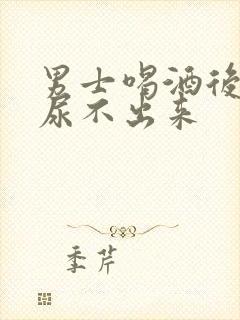 男士喝酒後
尿不出来
季芹